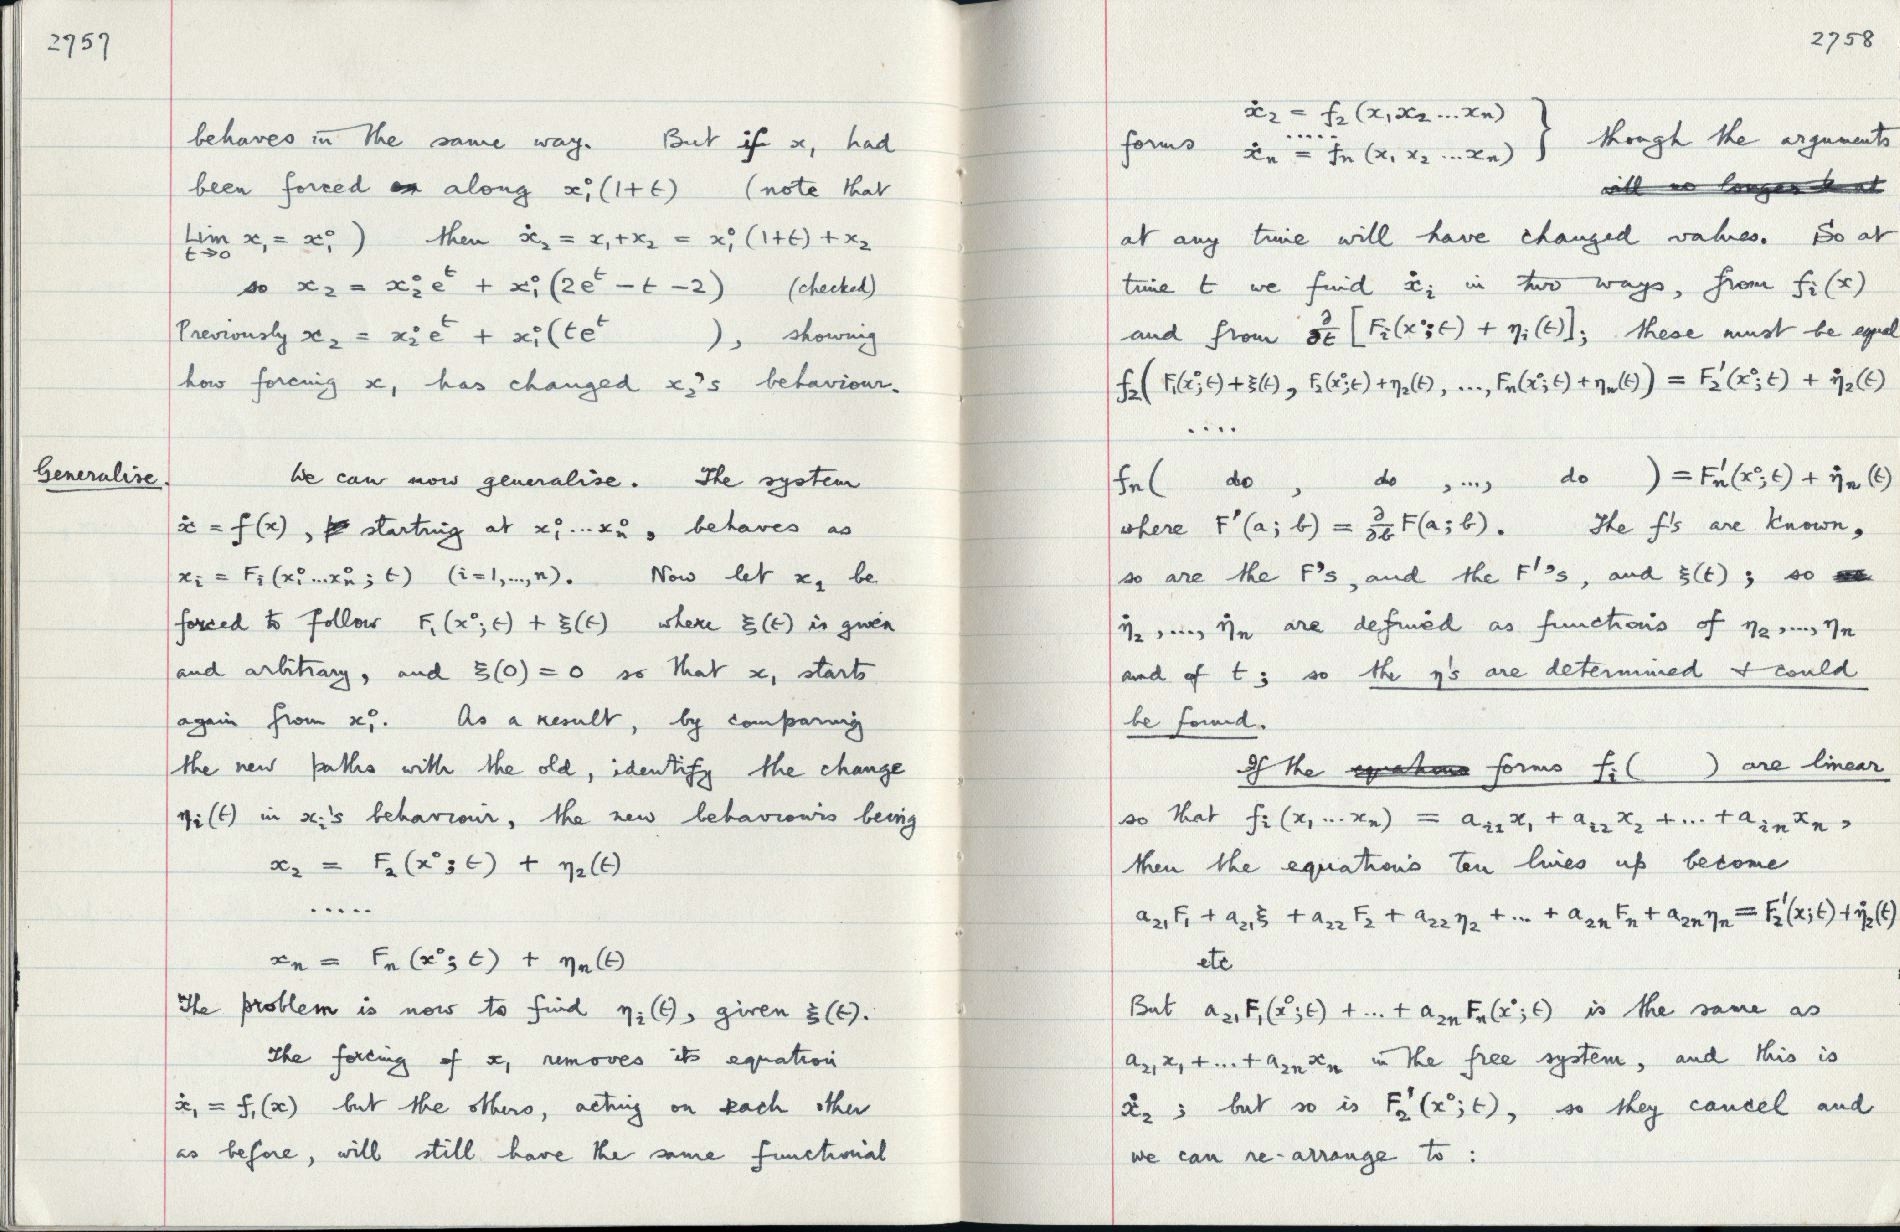 2757
behaves in the same way. But if x₁ had
been forced along x₁°(1+t) (note that
Lim x₁ = x₁°) then ẋ₂ = x₁+x₂ = x₁°(1+t)+x₂
t→0
so x₂ = x₂°eᵗ + x₁°(2eᵗ − t − 2) (checked)
Previously x₂ = x₂°eᵗ + x₁°(teᵗ ), showing
how forcing x₁ has changed x₂'s behaviour.
Generalise.
We can now generalise. The system
ẋ = f(x), starting at x₁°...xₙ°, behaves as
xᵢ = Fᵢ(x₁°...xₙ°; t) (i=1,...,n). Now let x₁ be
forced to follow F₁(x°;t) + ξ(t) where ξ(t) is given
and arbitrary, and ξ(0) = 0 so that x₁ starts
again from x₁°. As a result, by comparing
the new paths with the old, identify the change
ηᵢ(t) in xᵢ's behaviour, the new behaviours being
x₂ = F₂(x°; t) + η₂(t)
.....
xₙ = Fₙ(x°; t) + ηₙ(t)
The problem is now to find ηᵢ(t), given ξ(t).
The forcing of x₁ removes its equation
ẋ₁ = f₁(x) but the others, acting on each other
as before, will still have the same functional
2758
ẋ₂ = f₂(x₁x₂...xₙ)
.....
forms ẋₙ = fₙ(x₁ x₂ ...xₙ) } though the arguments
will no longer at
at any time will have changed values. So at
time t we find ẋᵢ in two ways, from fᵢ(x)
and from ∂/∂t [Fᵢ(x°;t) + ηᵢ(t)]; these must be equal
f₂(F₁(x°;t)+ξ(t), F₂(x°;t)+η₂(t), ..., Fₙ(x°;t)+ηₙ(t)) = F₂'(x°;t) + η̇₂(t)
....
fₙ( do , do ,..., do ) = Fₙ'(x°;t) + η̇ₙ(t)
where F'(a; b) = ∂/∂b F(a; b). The f's are known,
so are the F's, and the F''s, and ξ(t); so
η̇₂,..., η̇ₙ are defined as functions of η₂,..., ηₙ
and of t; so the η's are determined & could
be found.
If the equations forms fᵢ( ) are linear
so that fᵢ(x₁...xₙ) = aᵢ₁x₁ + aᵢ₂x₂ +...+ aᵢₙxₙ,
then the equations ten lines up become
a₂₁F₁ + a₂₁ξ + a₂₂F₂ + a₂₂η₂ +... + a₂ₙFₙ + a₂ₙηₙ = F₂'(x;t) + η̇₂(t)
etc
But a₂₁F₁(x°;t) +...+ a₂ₙFₙ(x°;t) is the same as
a₂₁x₁+...+a₂ₙxₙ in the free system, and this is
ẋ₂; but so is F₂'(x°;t), so they cancel and
we can re-arrange to :